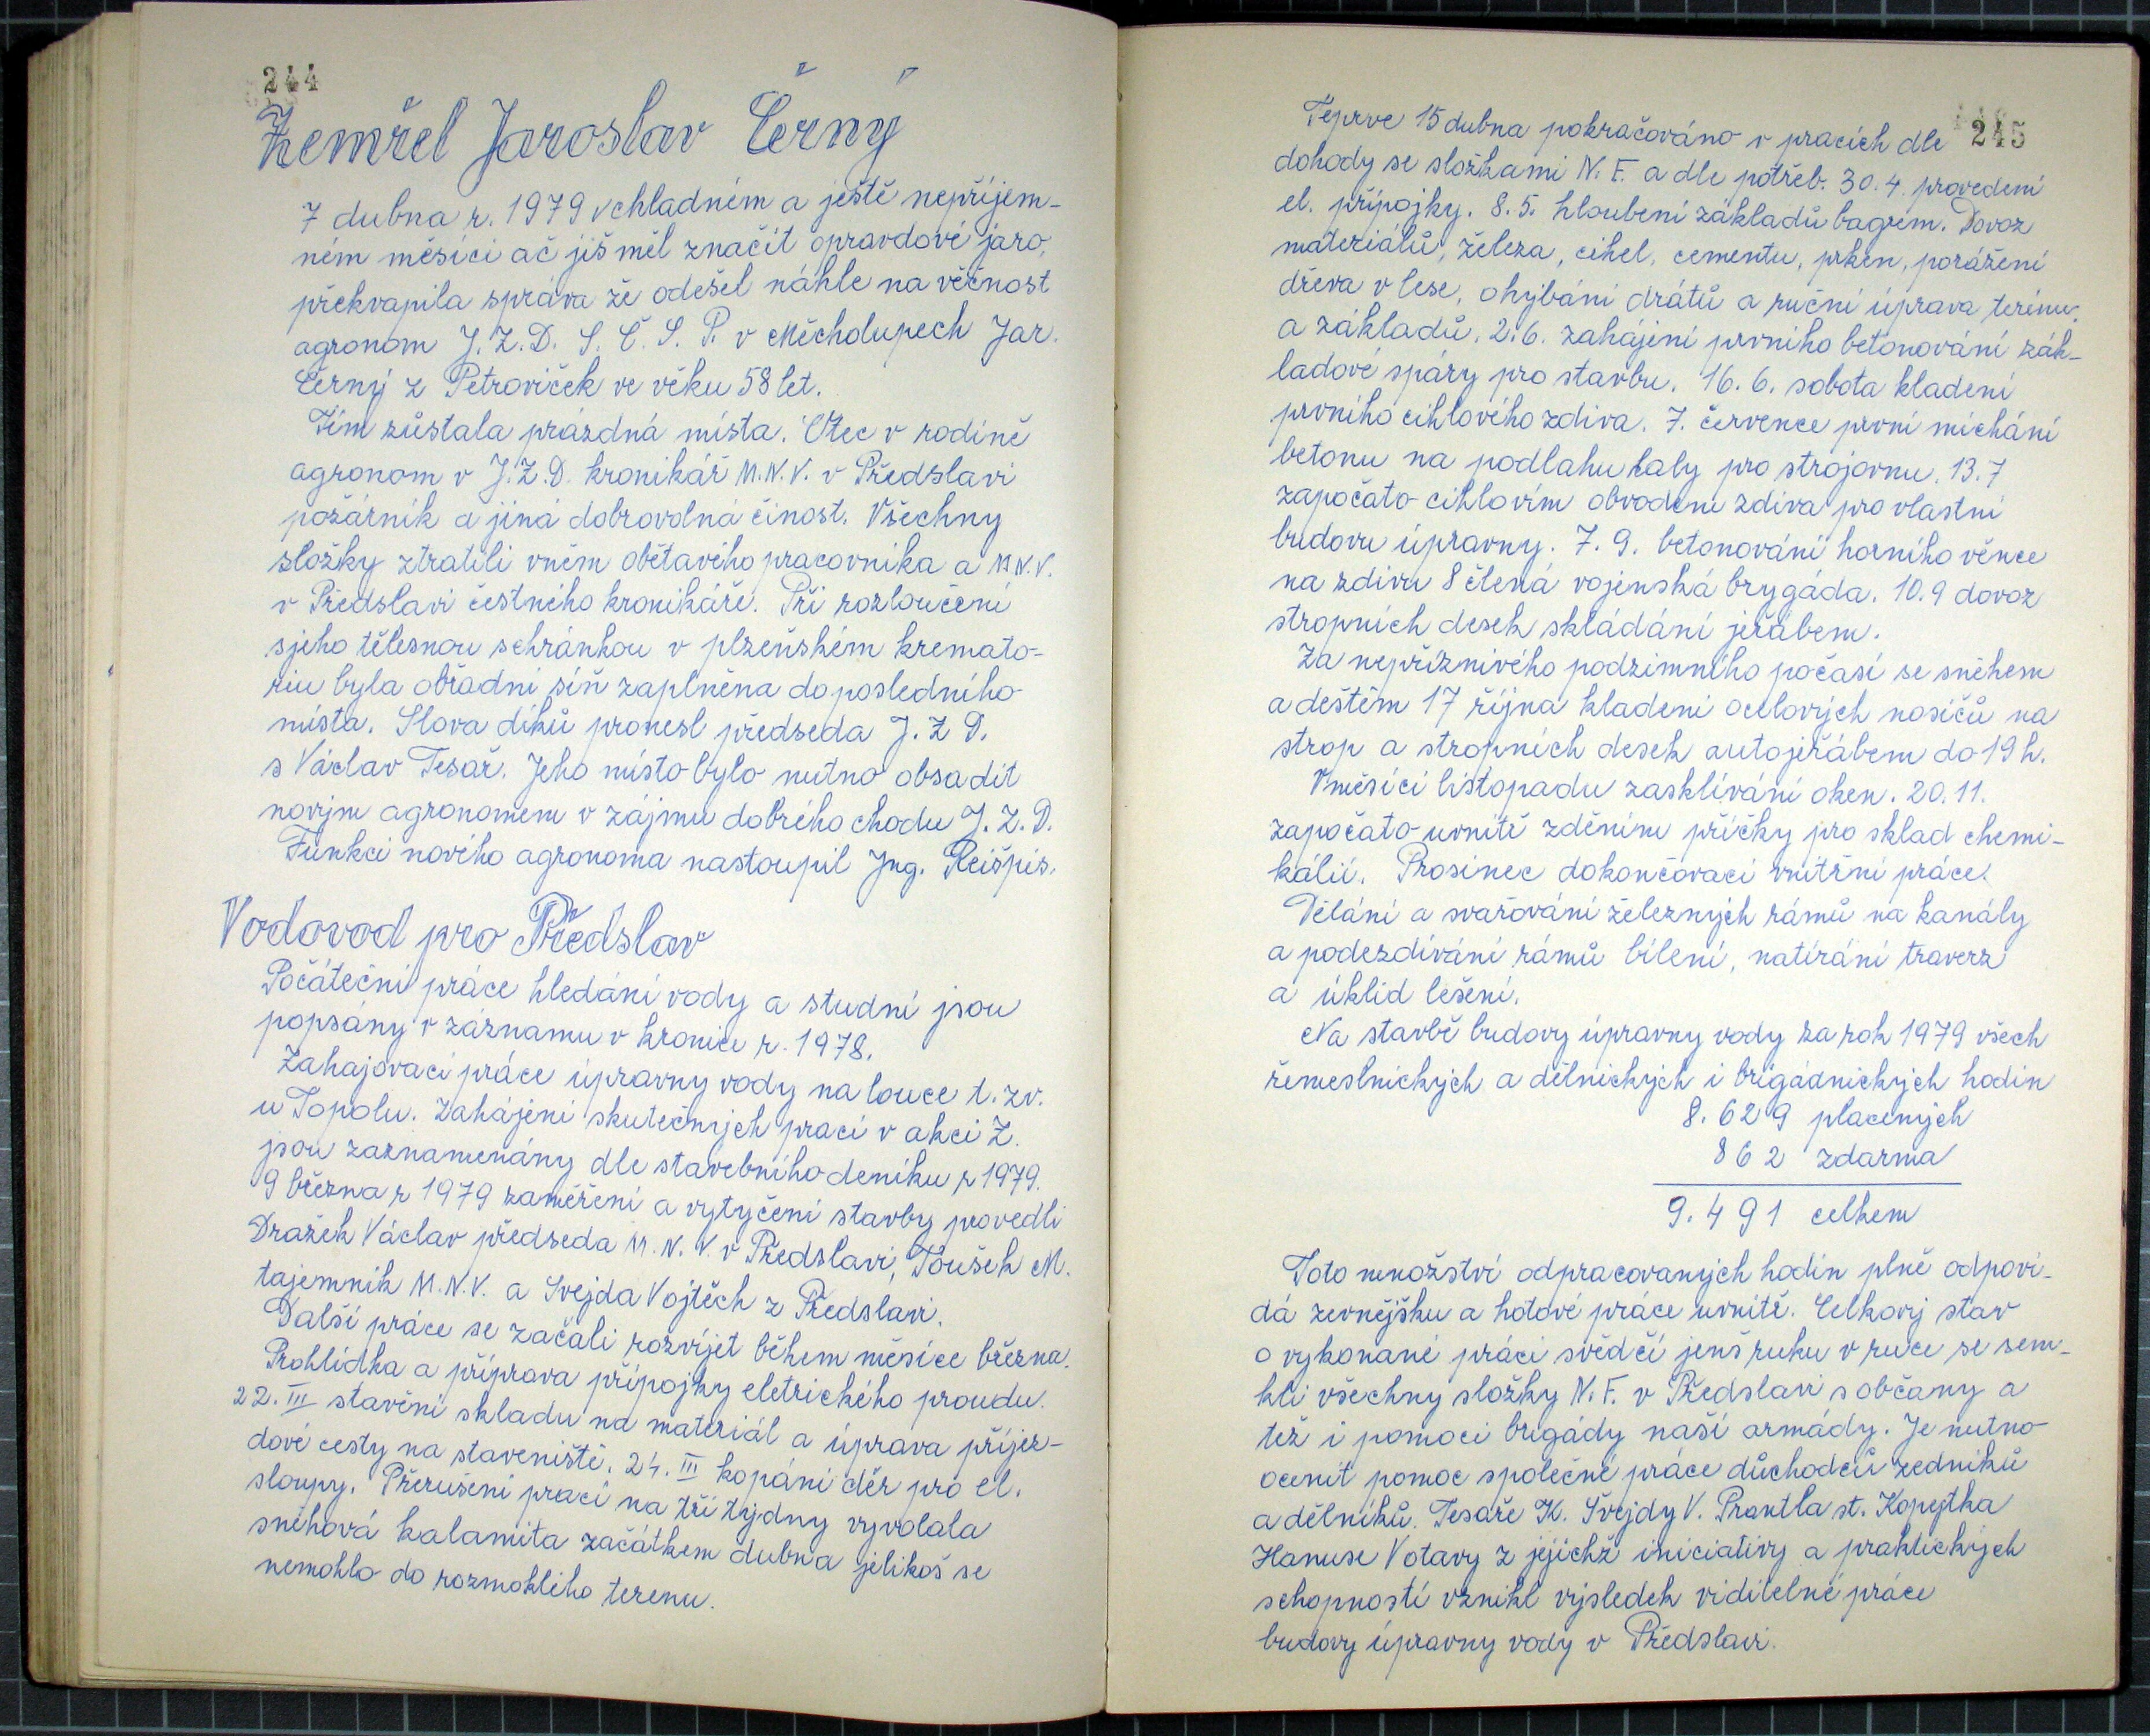 244
Zemřel Jaroslav Černý
7 dubna r. 1979 v chladném a ještě nepříjem-
ném měsíci ač jiš měl značit opravdové jaro,
překvapila správa že odešel náhle na věčnost
agronom J. Z. D. S. Č. S. P. v Měcholupech Jar.
Černý z Petroviček ve věku 58 let.
Tím zůstala prázdná místa. Otec v rodině
agronom v J. Z. D. kronikář M. N. V. v Předslavi
požárník a jiná dobrovolná činost. Všechny
složky ztratili vněm obětavého pracovníka a M N. V.
v Předslavi čestného kronikáře. Při rozloučení
sjeho tělesnou schránkou v plzeňském kremato-
riu byla obřadní síň zaplněna do posledního
místa. Slova díků pronesl předseda J. Z D.
s Václav Tesař. Jeho místo bylo nutno obsadit
novým agronomem v zájmu dobrého chodu J. Z. D.
Funkci nového agronoma nastoupil Jng. Reišpis.
Vodovod pro Předslav
Počáteční práce hledání vody a studní jsou
popsány v záznamu v kronice r. 1978.
Zahajovací práce úpravny vody na louce t. zv.
u Topolu. Zahájení skutečných prací v akci Z.
jsou zaznamenány dle stavebního deníku r 1979.
9 března r 1979 zaměření a vytyčení stavby provedli
Dražek Václav předseda M. N. V. v Předslavi, Toušek M.
tajemník M. N. V. a Svejda Vojtěch z Předslavi.
Další práce se začali rozvíjet během měsíce března.
Prohlídka a příprava přípojky eletrického proudu.
22. III stavění skladu na materiál a úprava příjez-
dové cesty na staveniště. 24. III kopání děr pro el.
sloupy. Přerušení prací na tři týdny vyvolala
sněhová kalamita začátkem dubna jelikoš se
nemohlo do rozmoklého terenu.
245
Teprve 15 dubna pokračováno v pracích dle
dohody se složkami N. F. a dle potřeb. 30. 4. provedení
el. přípojky. 8. 5. hloubení základů bagrem. Dovoz
materiálů, železa, cihel, cementu, prken, porážení
dřeva v lese, ohýbání drátů a ruční úprava terénu.
a základů. 2. 6. zahájení prvního betonování zák-
ladové spáry pro stavbu. 16. 6. sobota kladení
prvního cihlového zdiva. 7. července první míchání
betonu na podlahu haly pro strojovnu. 13. 7
započato cihlovím obvodení zdiva pro vlastní
budovu úpravny. 7. 9. betonování horního věnce
na zdivu 8 člená vojenská brygáda. 10. 9 dovoz
stropních desek skládání jeřábem.
Za nepříznivého podzimního počasí se sněhem
a deštěm 17 října kladení ocelových nosičů na
strop a stropních desek autojeřábem do 19 h.
V měsíci listopadu zasklívání oken. 20. 11.
započato uvnitř zděním příčky pro sklad chemi-
kálií. Prosinec dokončovací vnitřní práce.
Dělání a svařování železných rámů na kanály
a podezdívání rámů bílení, natírání traverz
a úklid lešení.
Na stavbě budovy úpravny vody za rok 1979 všech
řemeslnických a dělnických i brigádnických hodin
8. 629 placených
862 zdarma
9. 491 celkem
Toto množství odpracovaných hodin plně odpoví-
dá zevnějšku a hotové práce uvnitř. Celkový stav
o vykonané práci svědčí jenš ruku v ruce se sem-
kli všechny složky N. F. v Předslavi s občany a
též i pomocí brigády naší armády. Je nutno
ocenit pomoc společné práce důchodců zedníků
a dělníků. Tesaře K. Švejdy V. Prantla st. Kopejtka
Hanuse Votavy z jejichž iniciativy a praktických
schopností vznikl výsledek viditelné práce
budovy úpravny vody v Předslavi.